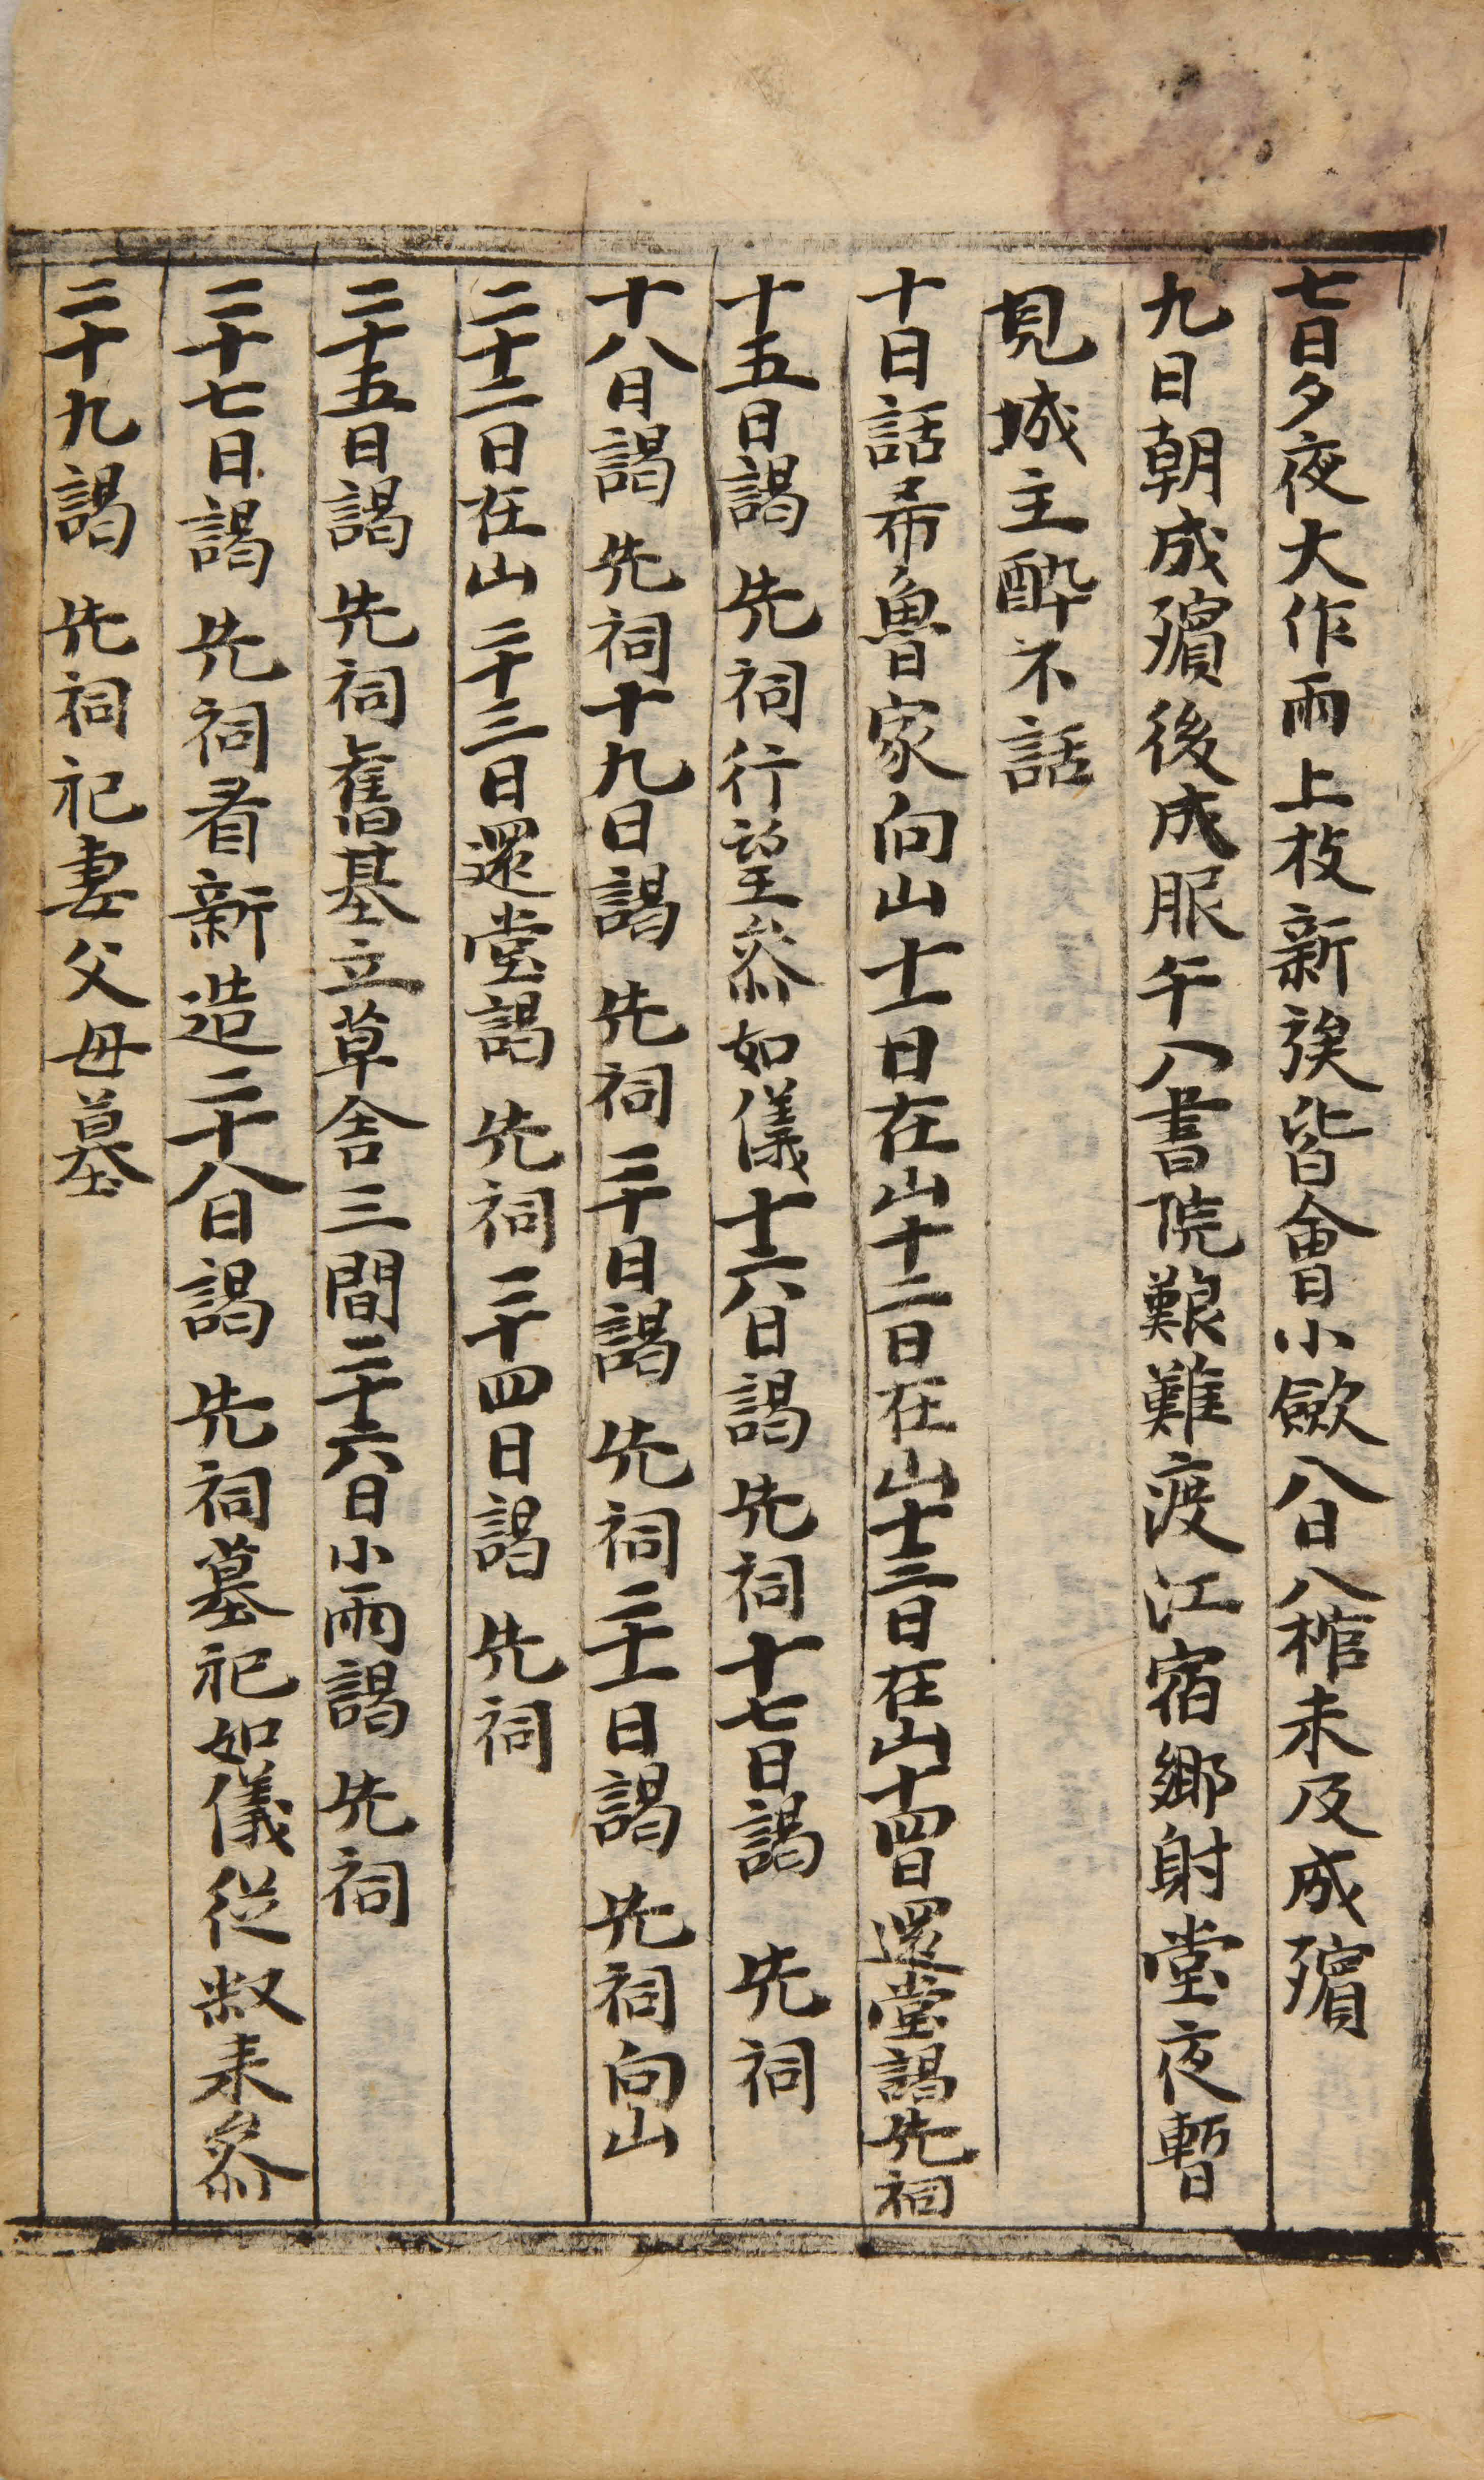 七日夕夜大作雨上枝新㑨皆會小歛八日入棺未及成殯
九日朝成殯後成服午入書院艱難渡江宿鄉射堂夜暫
見城主醉不話
十日話希魯家向山十一日在山十二日在山十三日在山十四日還堂謁先祠
十五日謁先祠行望叅如儀十六日謁先祠十七日謁先祠
十八日謁先祠十九日謁先祠二十日謁先祠二十一日謁先祠向山
二十二日在山二十三日還堂謁先祠二十四日謁先祠
二十五日謁先祠舊基立草舍三間二十六日小雨謁先祠
二十七日謁先祠看新造二十八日謁先祠墓祀如儀從叔来叅
二十九謁先祠祀妻父母墓